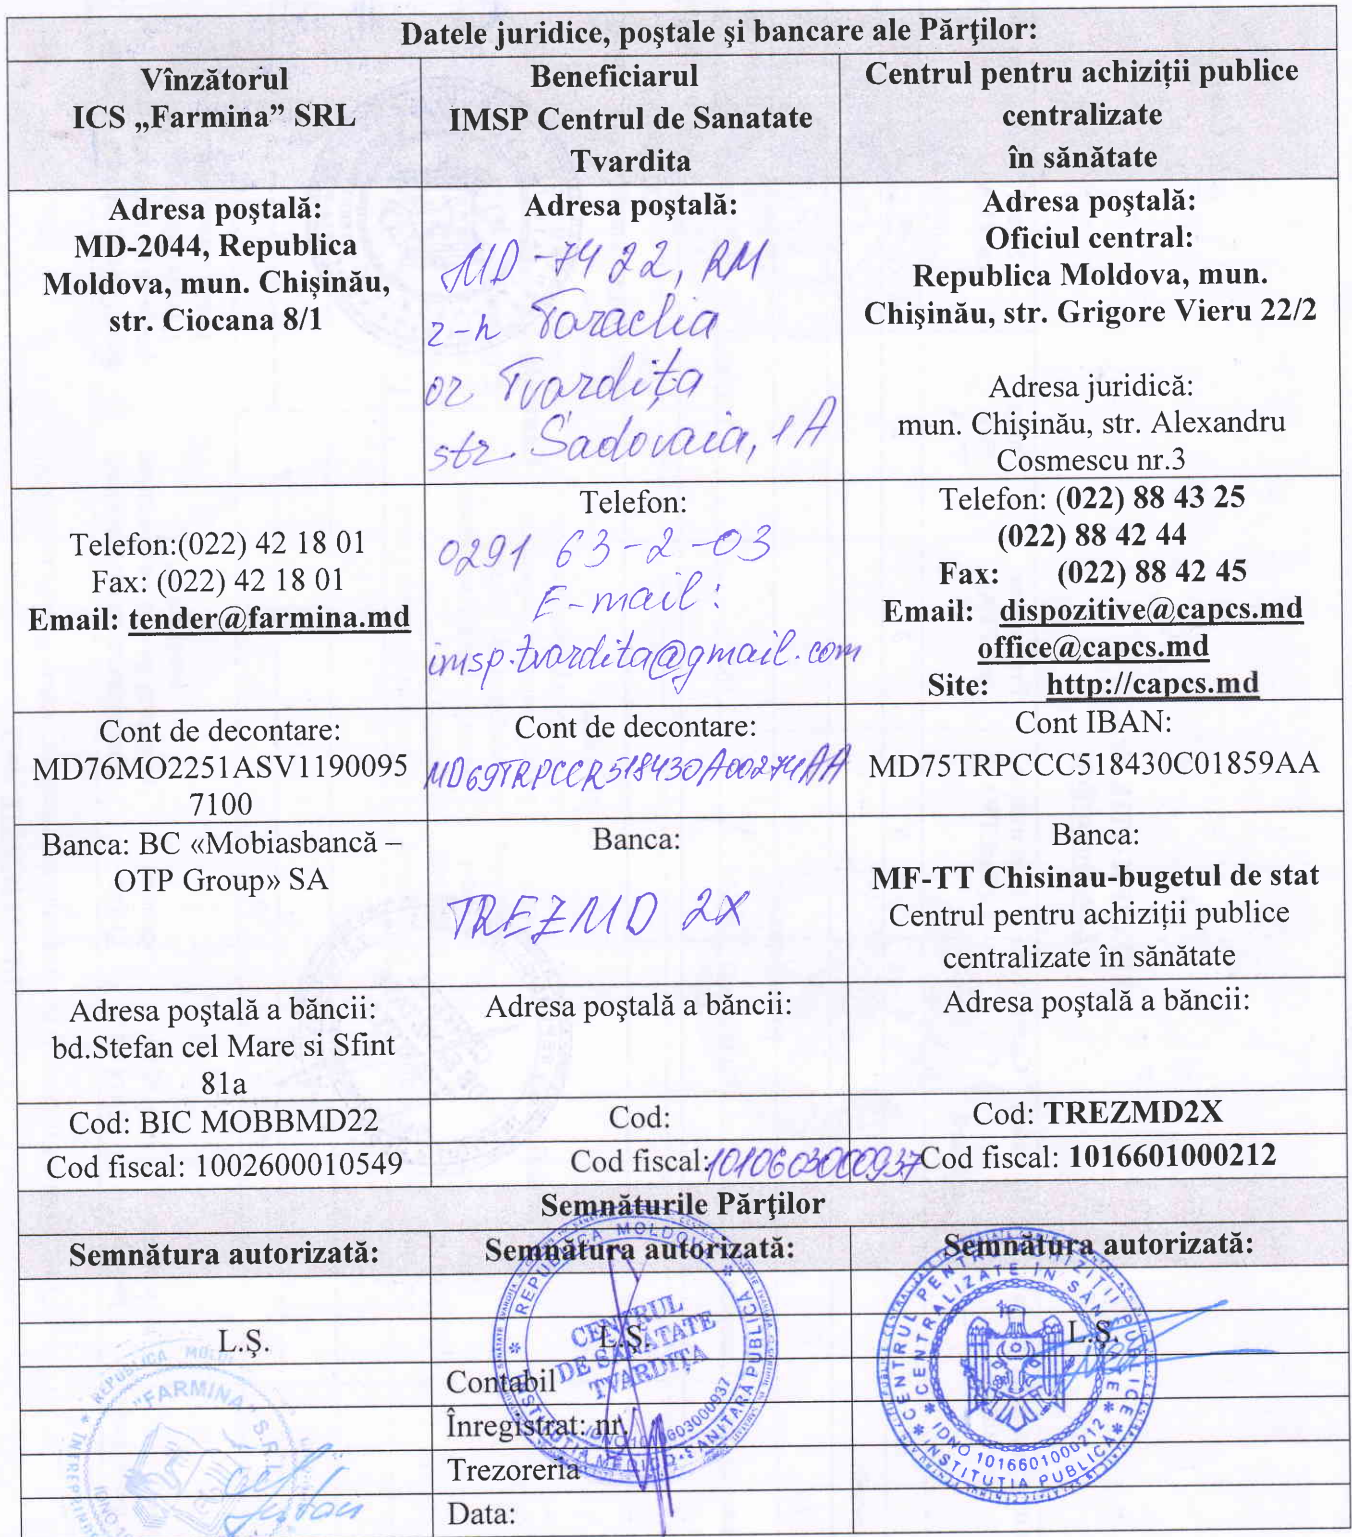 Datele juridice, poştale şi bancare ale Părţilor:
Vînzătorul
ICS „Farmina” SRL
Beneficiarul
IMSP Centrul de Sanatate
Tvardita
Centrul pentru achiziții publice
centralizate
în sănătate
Adresa poştală:
MD-2044, Republica
Moldova, mun. Chișinău,
str. Ciocana 8/1
Adresa poştală:
MD-7422, RM
r-n Taraclia
or Tvardița
str. Sadovaia, 1A
Adresa poştală:
Oficiul central:
Republica Moldova, mun.
Chişinău, str. Grigore Vieru 22/2
Adresa juridică:
mun. Chişinău, str. Alexandru
Cosmescu nr.3
Telefon:(022) 42 18 01
Fax: (022) 42 18 01
Email: tender@farmina.md
Telefon:
0291 63-2-03
E-mail:
imsp.tvardita@gmail.com
Telefon: (022) 88 43 25
(022) 88 42 44
Fax: (022) 88 42 45
Email: dispozitive@capcs.md
office@capcs.md
Site: http://capcs.md
Cont de decontare:
MD76MO2251ASV1190095
7100
Cont de decontare:
MD69TRPCCR518430A00274AA
Cont IBAN:
MD75TRPCCC518430C01859AA
Banca: BC «Mobiasbancă –
OTP Group» SA
Banca:
TREZMD 2X
Banca:
MF-TT Chisinau-bugetul de stat
Centrul pentru achiziții publice
centralizate în sănătate
Adresa poştală a băncii:
bd.Stefan cel Mare si Sfint
81a
Adresa poştală a băncii:
Adresa poştală a băncii:
Cod: BIC MOBBMD22
Cod:
Cod: TREZMD2X
Cod fiscal: 1002600010549
Cod fiscal: 1010603000937
Cod fiscal: 1016601000212
Semnăturile Părţilor
Semnătura autorizată:
Semnătura autorizată:
Semnătura autorizată:
L.Ş.
L.Ş.
L.Ş.
Contabil
Înregistrat: nr.
Trezoreria
Data:
REPUBLICA MOLDOVA
"FARMINA" S.R.L.
REPUBLICA MOLDOVA
CENTRUL
DE SĂNĂTATE
TVARDIŢA
INSTITUŢIA MEDICO-SANITARĂ PUBLICĂ
CENTRUL PENTRU ACHIZIȚII PUBLICE
CENTRALIZATE ÎN SĂNĂTATE
IDNO 1016601000212
INSTITUȚIA PUBLICĂ